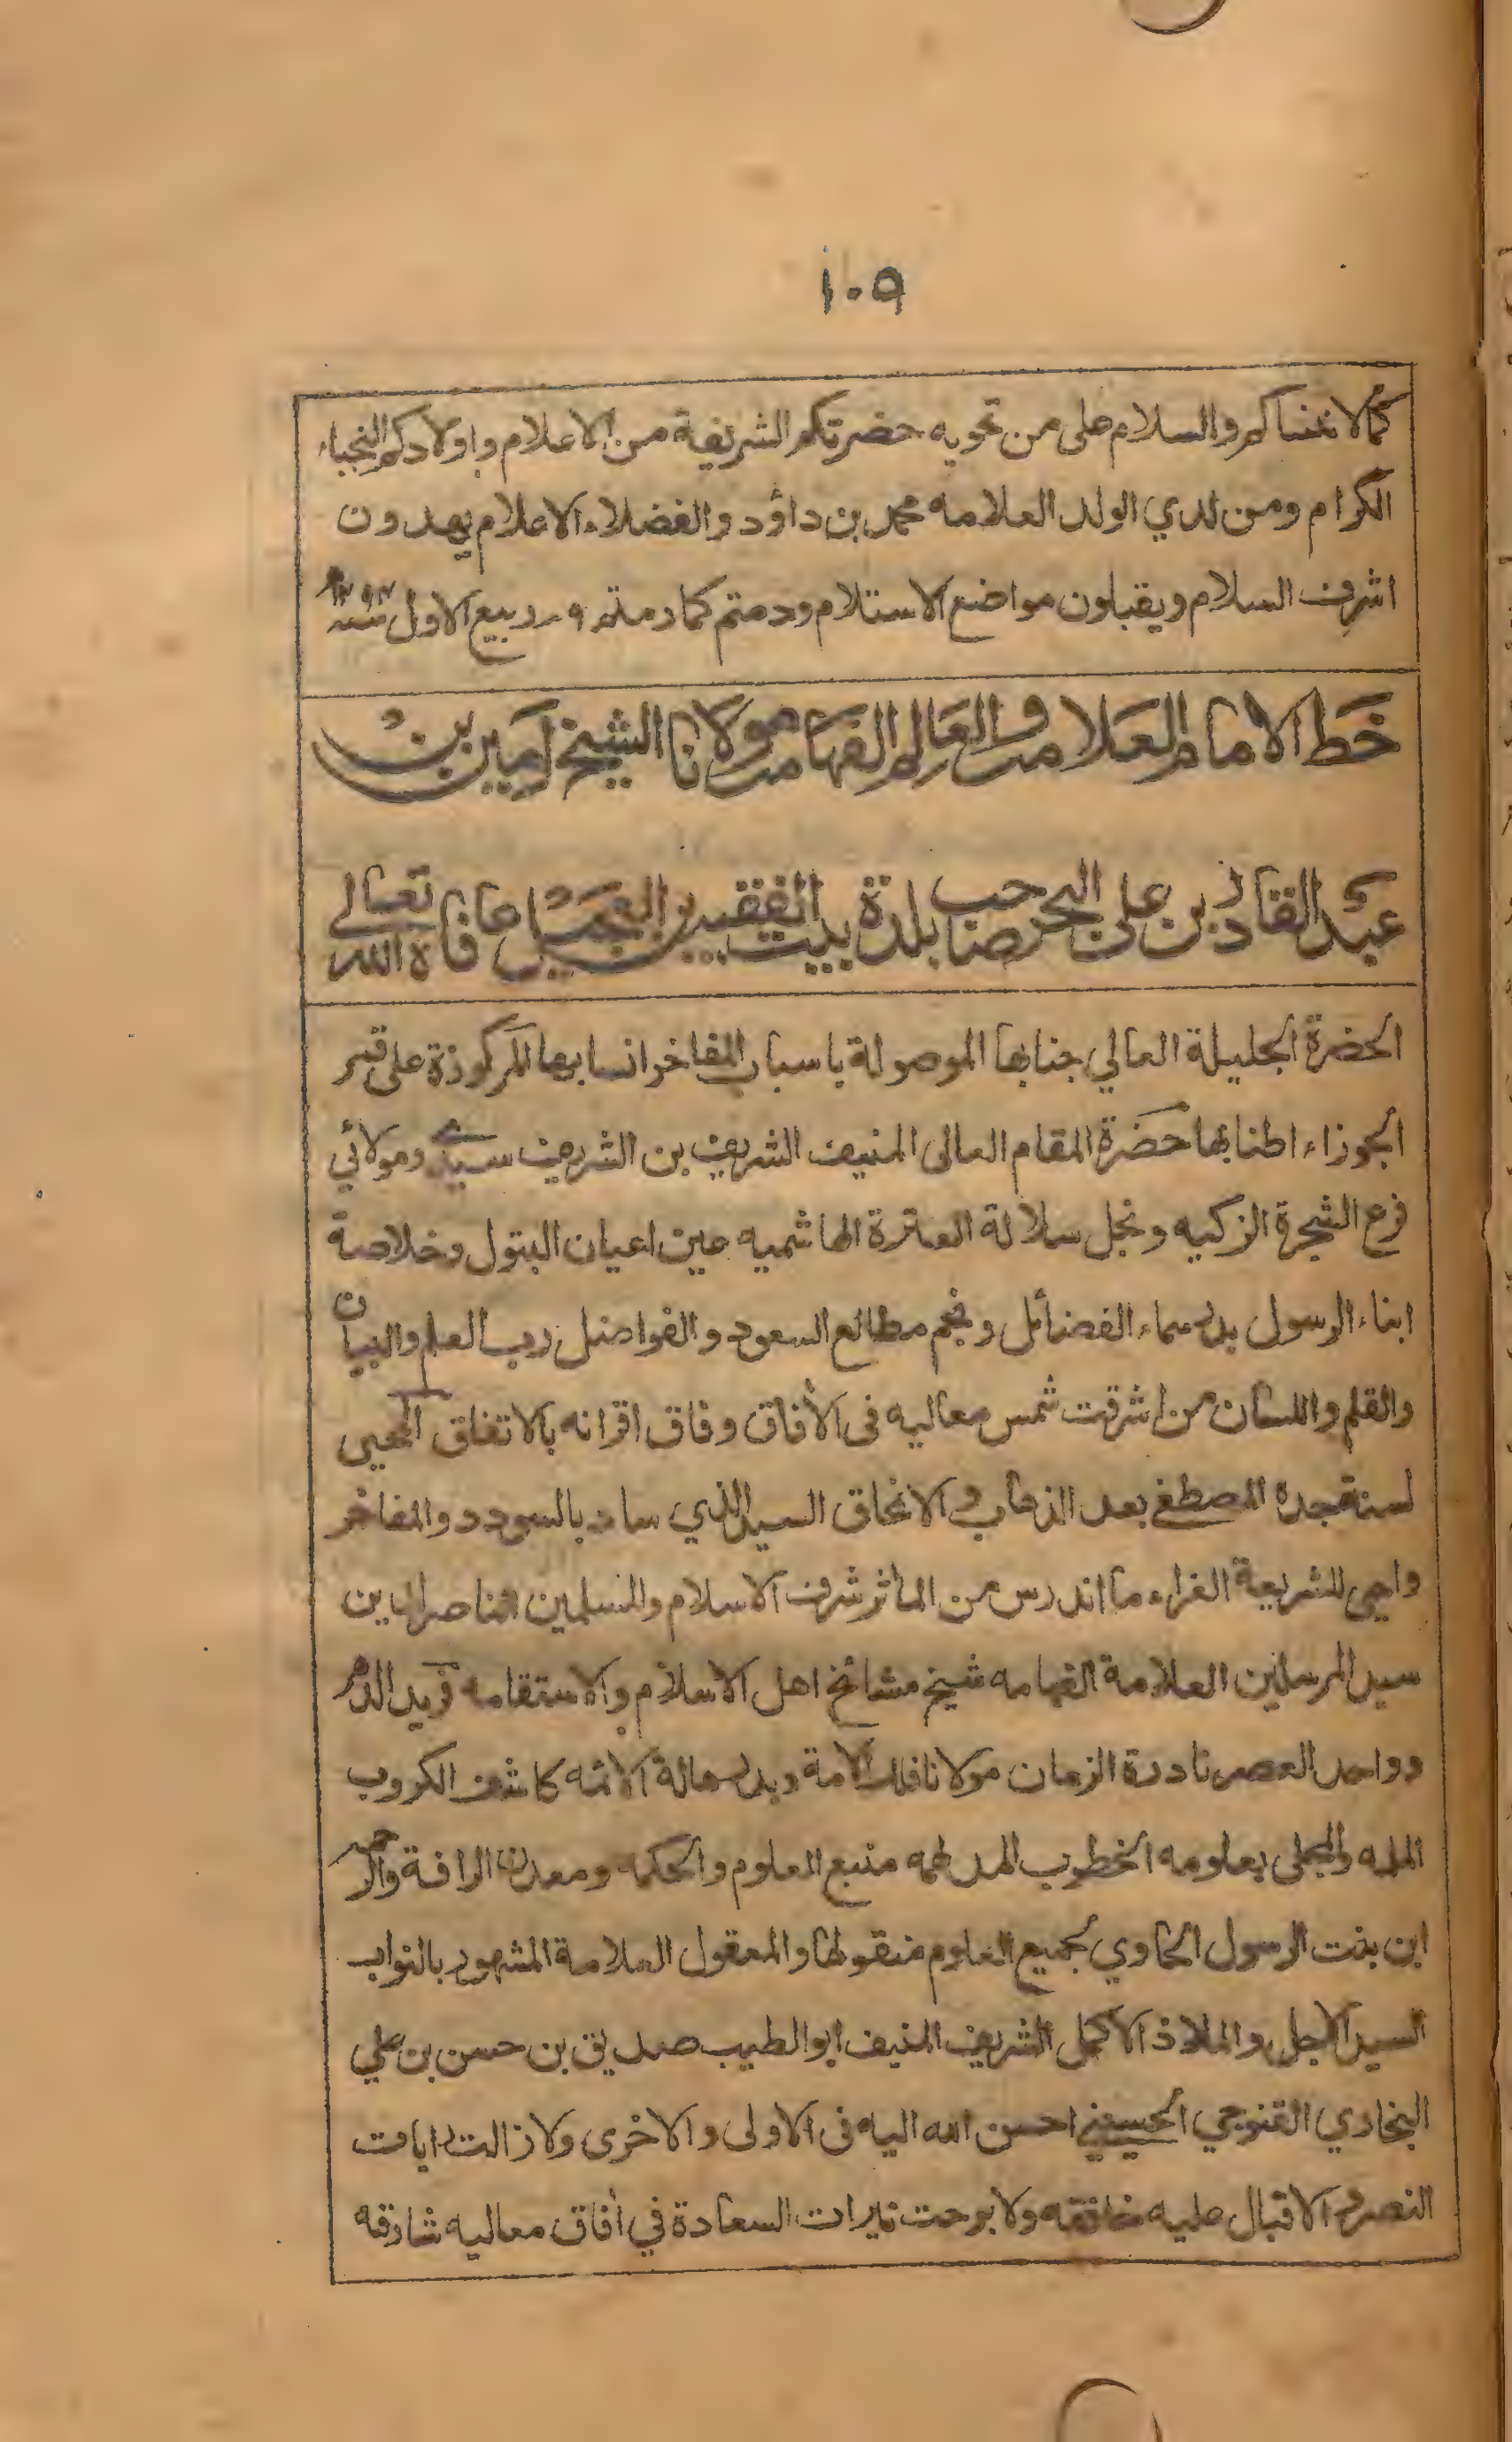 ١٠٩
كما لا نخشاكم والسلام على من تحويه حضرتكم الشريفة من الاعلام واولادكم النجباء
الكرام ومن لدي الولد العلامه محمد بن داؤد والفضلاء الاعلام يهدون
اشرف السلام ويقبلون مواضع الاستلام ودمتم كما رمتم ٩ ربيع الاول سنه
خط الامام العلامة والعالم الفهامة مولانا الشيخ امين بن
عبد القادر بن علي البحر صاحب بلدة بيت الفقيه بن العجيل عافاه الله تعالى
الحضرة الجليلة العالي جنابها الموصولة باسباب المفاخر انسابها المركوزة على قنن
الجوزاء اطنابها حضرة المقام العالى المنيف الشريف بن الشريف سيدي ومولائي
فرع الشجرة الزكيه ونجل سلالة العترة الهاشميه عين اعيان البتول وخلاصة
ابناء الرسول بدر سماء الفضائل ونجم مطالع السعود والفواضل رب العلم والبيان
والقلم واللسان من اشرقت شمس معاليه فى الأفاق وفاق اقرانه بالاتفاق المحيى
لسنة جده المصطفى بعد الذهاب والانمحاق السيد الذي ساد بالسودد والمفاخر
واحيى للشريعة الغراء ما اندرس من المأثر شرف الاسلام والمسلمين الناصر لدين
سيد المرسلين العلامة الفهامه شيخ مشائخ اهل الاسلام والاستقامه فريد الدهر
وواحد العصر نادرة الزمان مولانا فلك الامة وبدر هالة الائمه كاشف الكروب
الملمه والمجلى بعلومه الخطوب المدلهمه منبع العلوم والحكمه ومعدن الرافة والرحمه
ابن بنت الرسول الحاوي لجميع العلوم منقولها والمعقول العلامة المشهور بالنواب
السيد الاجل والملاذ الاكمل الشريف المنيف ابو الطيب صديق بن حسن بن علي
البخاري القنوجي الحسيني احسن الله اليه فى الاولى والاخرى ولا زالت رايات
النصر والاقبال عليه خافقه ولا برحت نيرات السعادة في أفاق معاليه شارقه